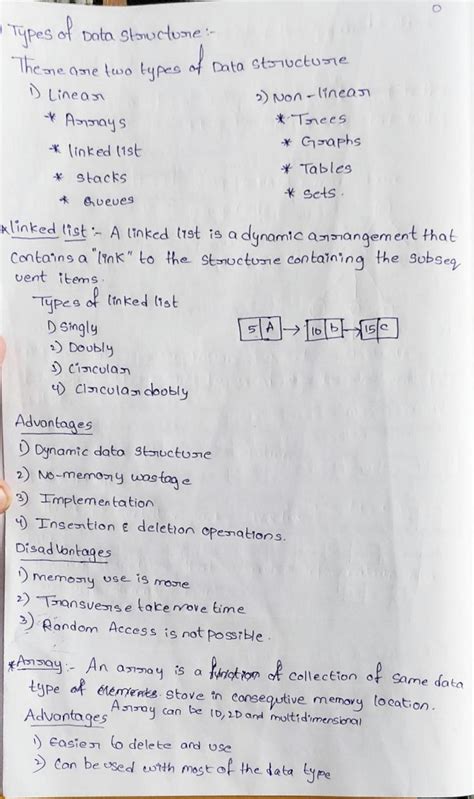 Types of Data Structure:-
There are two types of Data structure
1) Linear 2) Non-linear
* Arrays * Trees
* linked list * Graphs
* stacks * Tables
* Queues * Sets.
* linked list :- A linked list is a dynamic arrangement that
contains a "link" to the structure containing the subseq
uent items.
Types of linked list
1) Singly 5 A → 10 b → 15 c
2) Doubly
3) Circular
4) Circular doobly
Advantages
1) Dynamic data structure
2) No-memory wastage
3) Implementation
4) Insertion & deletion operations.
Disadvantages
1) memory use is more
2) Transverse take more time
3) Random Access is not possible.
* Array :- An array is a function of collection of same data
type of elements store in consequtive memory location.
Array can be 1D, 2D and multidimensional
Advantages
1) Easier to delete and use
2) Can be used with most of the data type